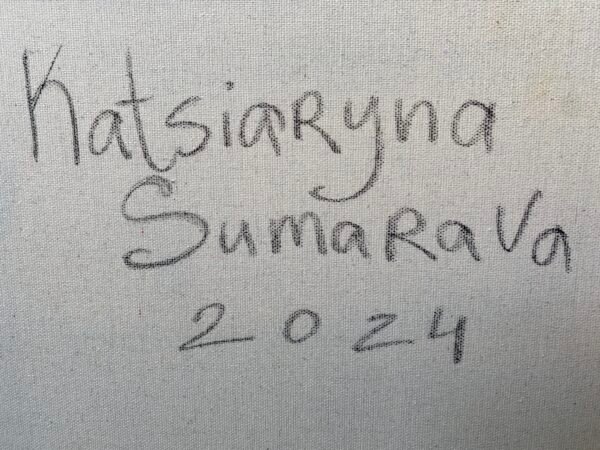 Katsiaryna
Sumarava
2024